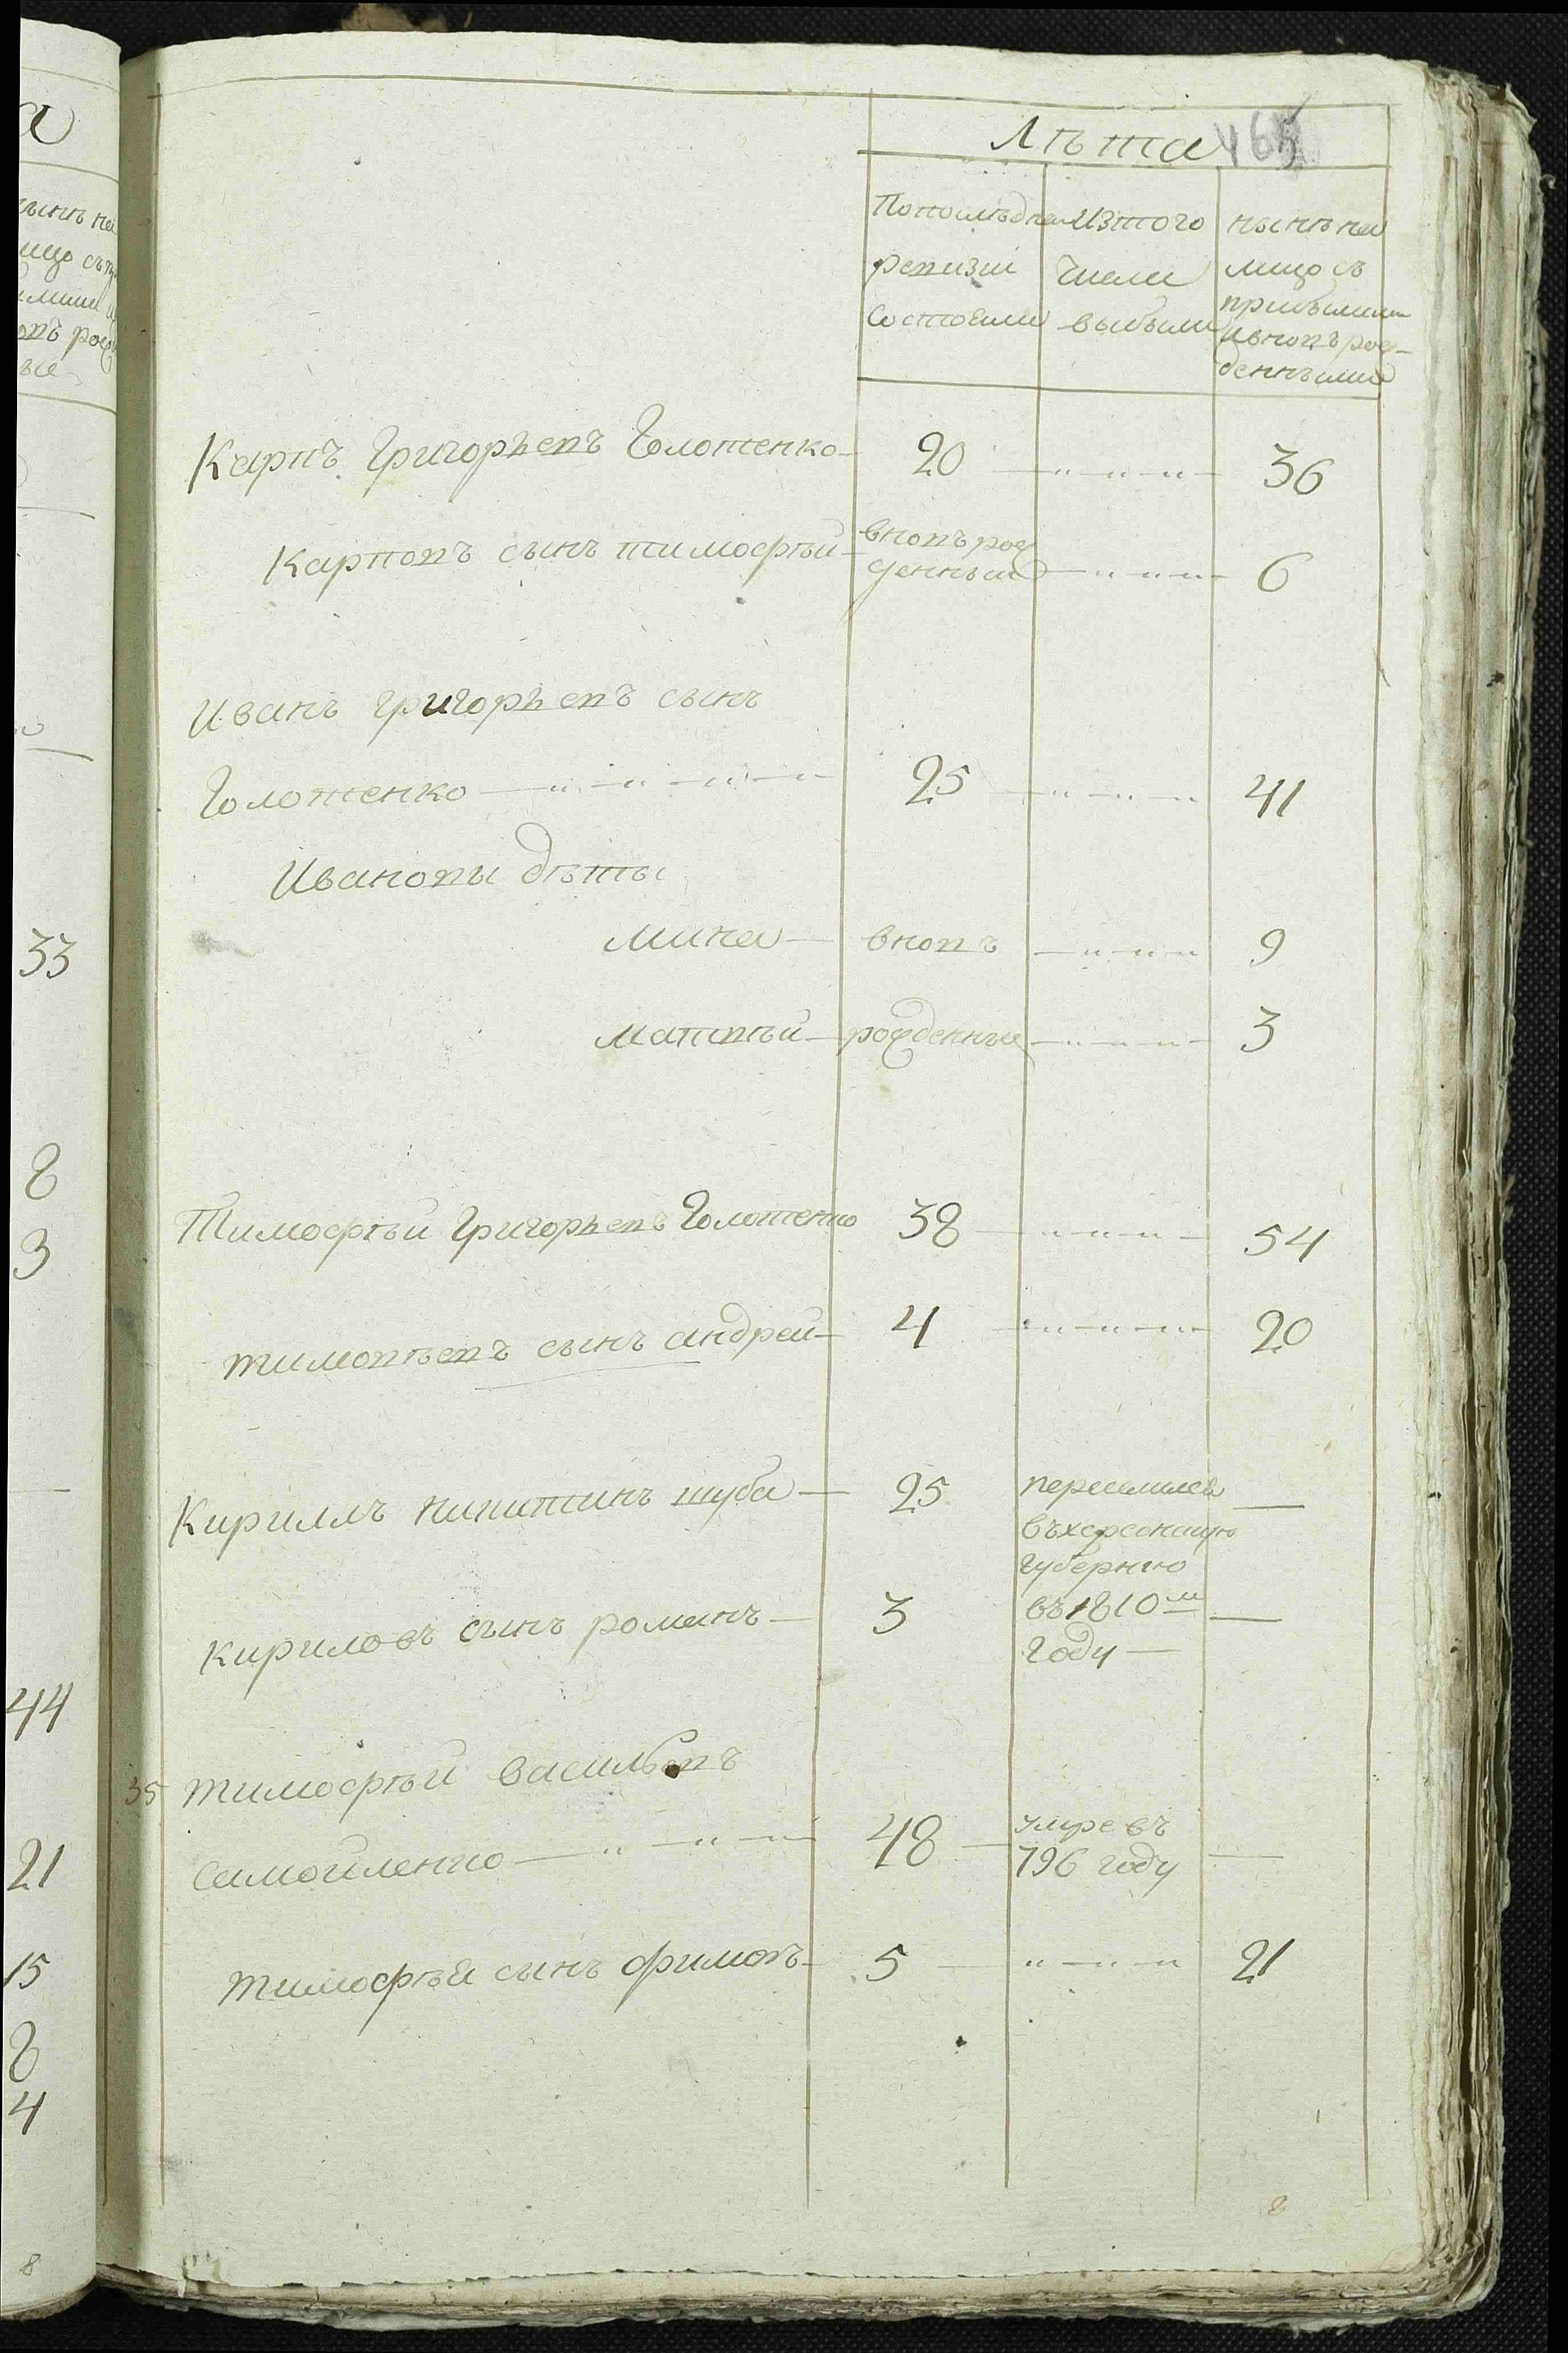 Лѣта 465
По последней
ревизіи
состояли
изтого
числа
выбыли
нынѣ на
лицо съ
прибылыми
ивновь рож-
денными
Карпъ Григорьевъ Голотенко 20 36
Карповъ сынъ тимофѣй вновь рож
денный 6
Иванъ григорьевъ сынъ
Голотенко 25 41
Ивановы дѣты
мина вновь 9
матвѣй рожденные 3
Тимофѣй Григорьевъ Голотенко 38 54
тимофѣевъ сынъ андрей 4 20
Кириллъ никитинъ шуба 25 переселился
въхерсонскую
губернію
кириловъ сынъ романъ 3 въ 1810м
году
35 тимофѣй васильевъ
самойленко 48 умре въ
796 году
тимофѣя сынъ фимонъ 5 21
33
8
3
44
21
15
8
4
8